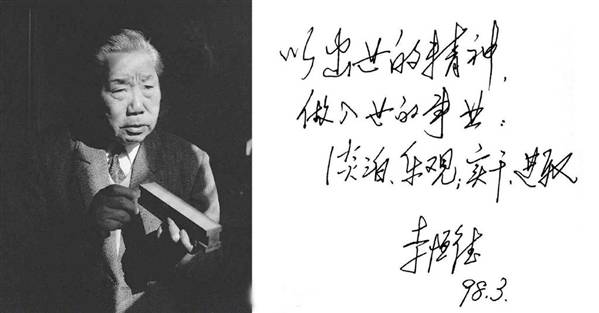 以出世的精神，
做入世的事业：
淡泊、乐观；实干、进取
李恒德
98.3.